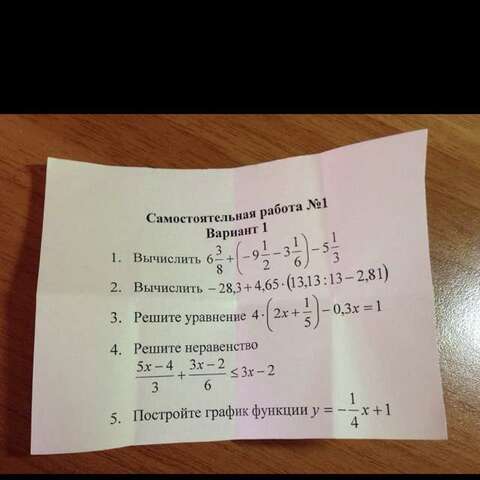 Самостоятельная работа №1
Вариант 1
1. Вычислить 6 3/8 + (−9 1/2 − 3 1/6) − 5 1/3
2. Вычислить −28,3 + 4,65 · (13,13 : 13 − 2,81)
3. Решите уравнение 4 · (2x + 1/5) − 0,3x = 1
4. Решите неравенство
(5x − 4)/3 + (3x − 2)/6 ≤ 3x − 2
5. Постройте график функции y = −1/4 x + 1